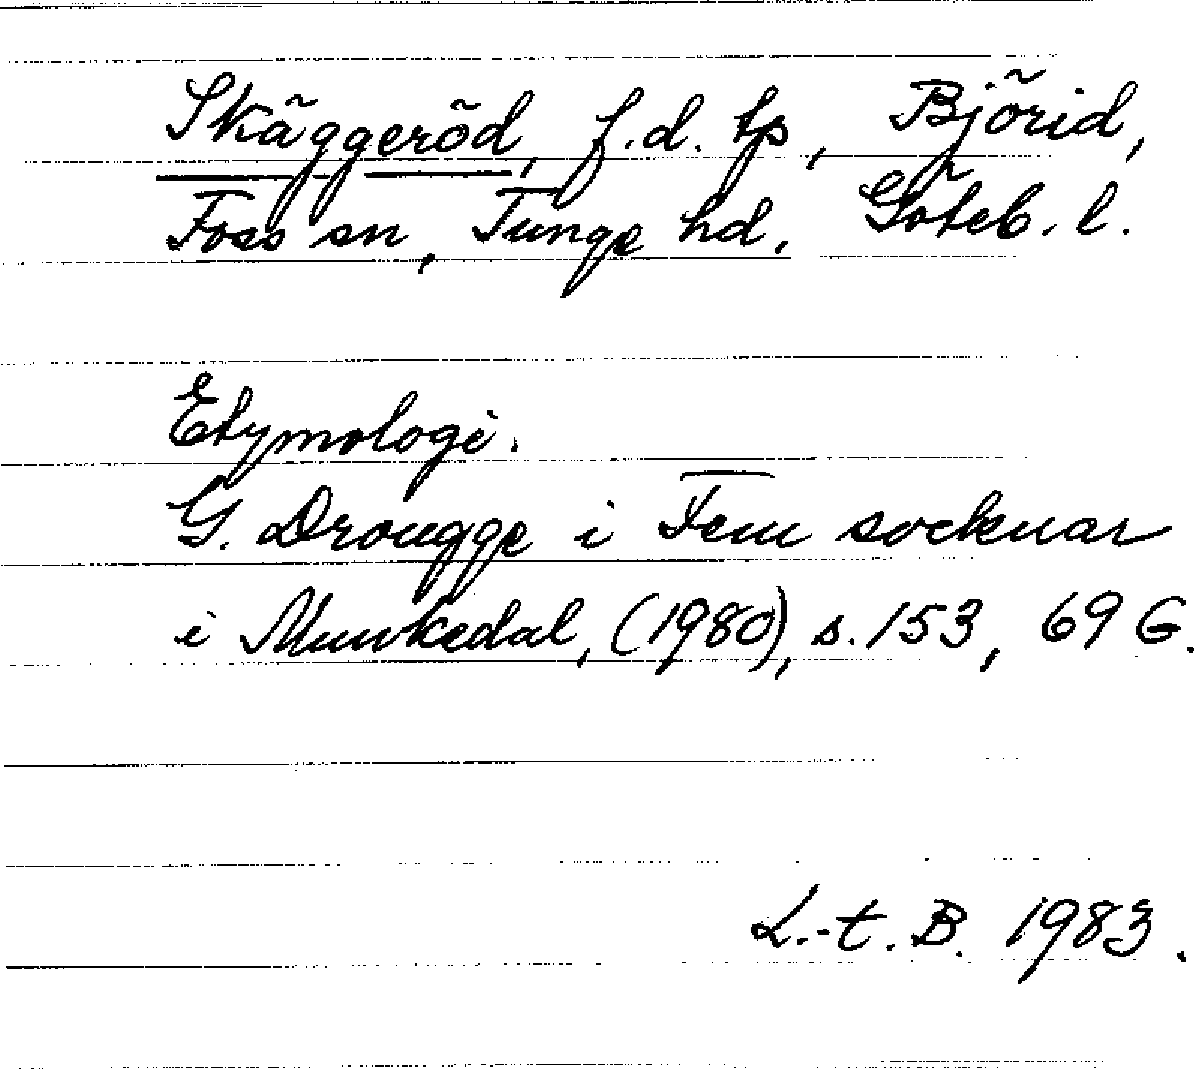 Skäggeröd, f.d. tp, Björid,
Foss sn, Tunge hd, Göteb. l.
Etymologi.
G. Drougge i Fem socknar
i Munkedal, (1980), s. 153, 69 G.
L.-t. B. 1983.